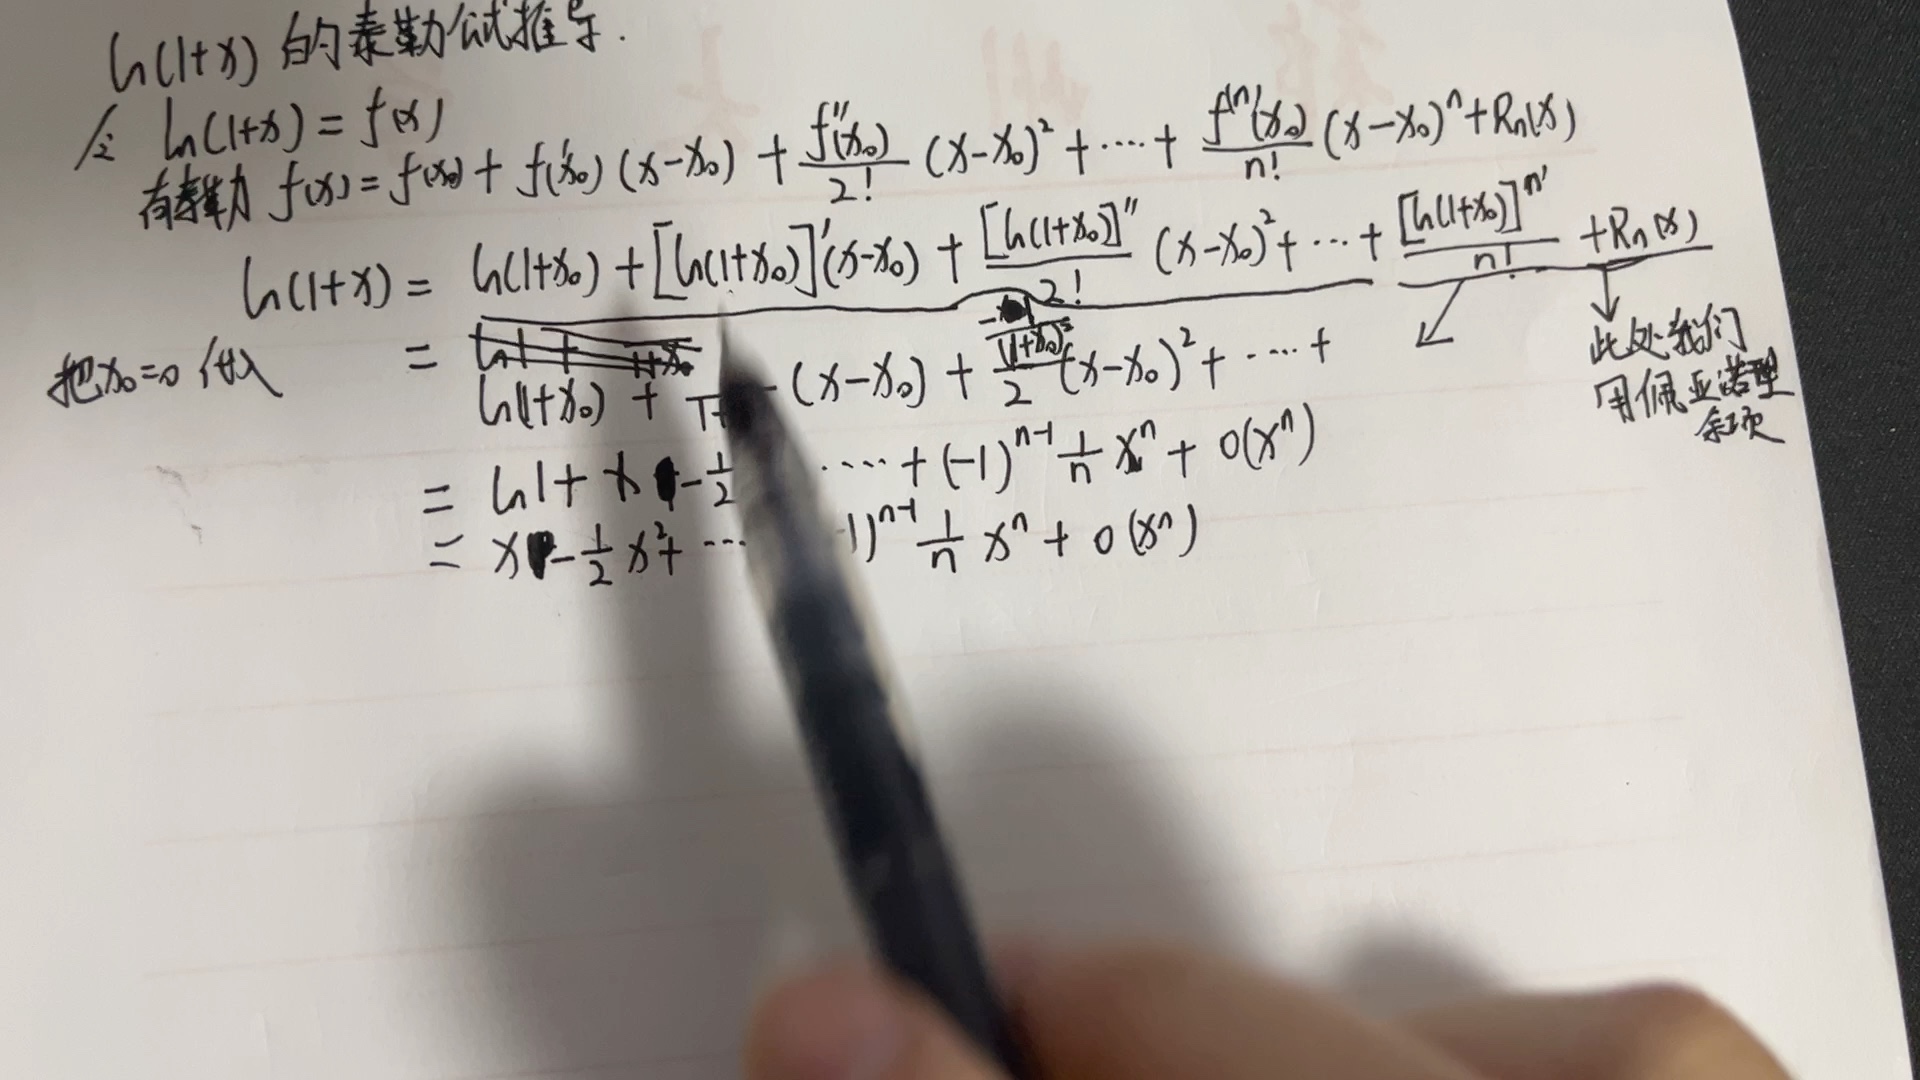 ln(1+x) 的泰勒公式推导.
令 ln(1+x) = f(x)
有泰勒 f(x) = f(x₀) + f'(x₀) (x-x₀) + f''(x₀)/2! (x-x₀)² + ‥‥ + f⁽ⁿ⁾(x₀)/n! (x-x₀)ⁿ + Rn(x)
ln(1+x) = ln(1+x₀) + [ln(1+x₀)]'(x-x₀) + [ln(1+x₀)]''/2! (x-x₀)² + ‥· + [ln(1+x₀)]ⁿ'/n! + Rn(x)
把x₀=0代入 = ln(1+x₀) + (x-x₀) + -1/(1+x₀)²/2 (x-x₀)² + ‥‥ +
此处我们
用佩亚诺型
余项
= ln1 + x - 1/2 ‥‥ + (-1)ⁿ⁻¹ 1/n xⁿ + o(xⁿ)
= x - 1/2 x² + ‥· 1)ⁿ⁻¹ 1/n xⁿ + o(xⁿ)